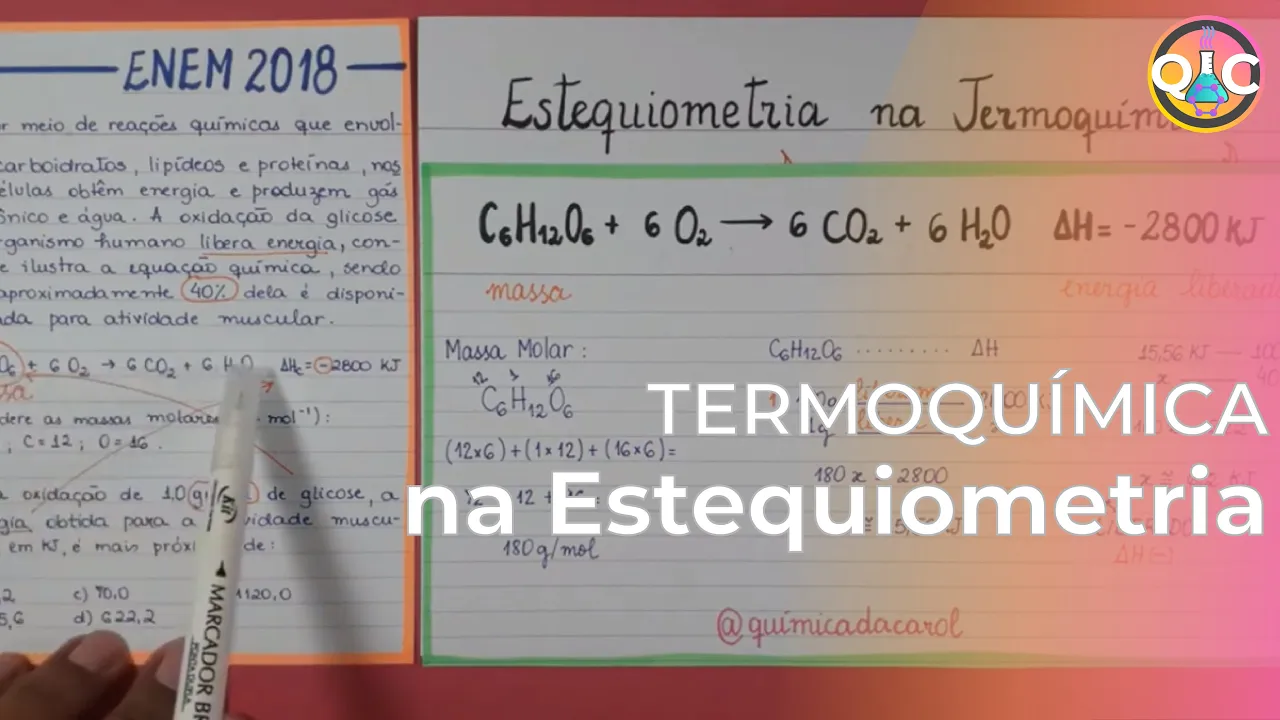 ENEM 2018
r meio de reações químicas que envol-
carboidratos, lipídeos e proteínas, nas
élulas obtêm energia e produzem gás
ônico e água. A oxidação da glicose
rganismo humano libera energia, con-
e ilustra a equação química, sendo
aproximadamente 40% dela é disponi-
ada para atividade muscular.
O₆ + 6 O₂ → 6 CO₂ + 6 H₂O ΔHc = -2800 KJ
ssa
dere as massas molares mol⁻¹):
; C=12 ; O=16.
a oxidação de 1,0 g de glicose, a
gia obtida para a vidade muscu-
em KJ, é mais próxi de:
,2 c) 70,0 1120,0
5,6 d) 622,2
MARCADOR BR
Estequiometria na Termoquím
C₆H₁₂O₆ + 6 O₂ → 6 CO₂ + 6 H₂O ΔH = -2800 KJ
massa energia liberad
Massa Molar :
12 1 16
C₆H₁₂O₆
(12x6)+(1x12)+(16x6)=
72 + 12 +
180g/mol
C₆H₁₂O₆ ......... ΔH
180 x = 2800
15,56 KJ — 100
x — 40
ΔH (-)
@químicadacarol
QC
TERMOQUÍMICA
na Estequiometria